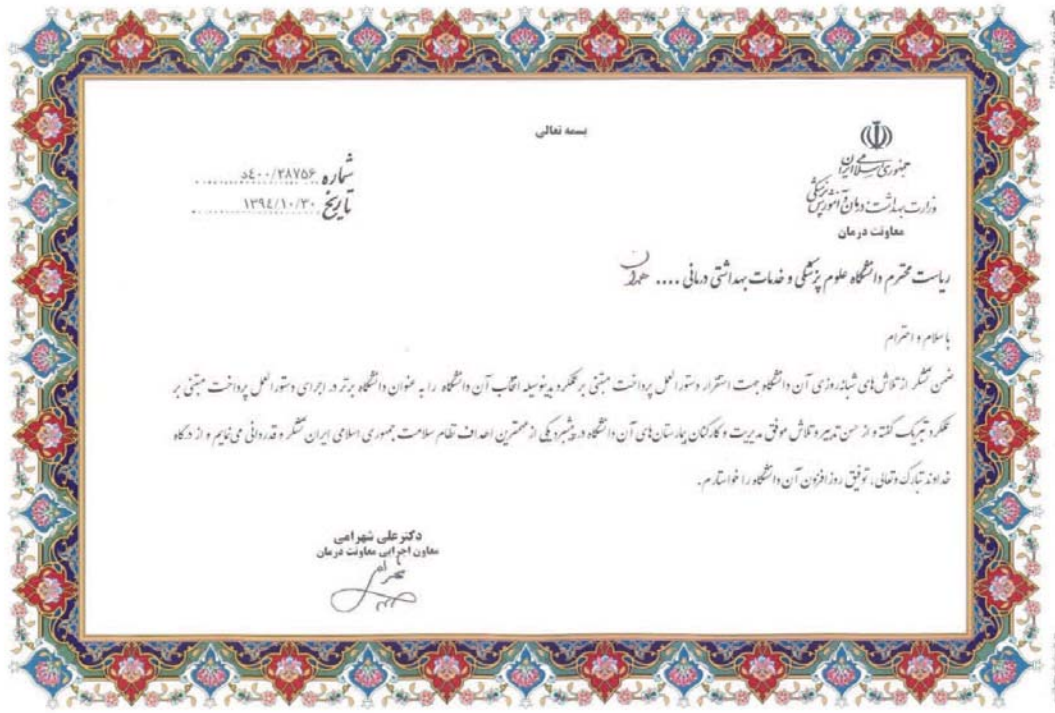 بسمه تعالی
جمهوری اسلامی ایران
وزارت بهداشت، درمان و آموزش پزشکی
معاونت درمان
شماره ۴۰۰/۲۸۷۵۶د
تاریخ ۱۳۹۴/۱۰/۳۰
ریاست محترم دانشگاه علوم پزشکی و خدمات بهداشتی درمانی ....
با سلام و احترام
ضمن تشکر از تلاش های شبانه روزی آن دانشگاه جهت استقرار دستورالعمل پرداخت مبتنی بر عملکرد بدینوسیله انتخاب آن دانشگاه را به عنوان دانشگاه برتر در اجرای دستورالعمل پرداخت مبتنی بر
عملکرد تبریک گفته و از حسن تدبیر و تلاش موفق مدیریت و کارکنان بیمارستان های آن دانشگاه در پیشبرد یکی از مهمترین اهداف نظام سلامت جمهوری اسلامی ایران تشکر و قدردانی می نمایم و از درگاه
خداوند تبارک وتعالی، توفیق روزافزون آن دانشگاه را خواستارم.
دکتر علی شهرامی
معاون اجرایی معاونت درمان